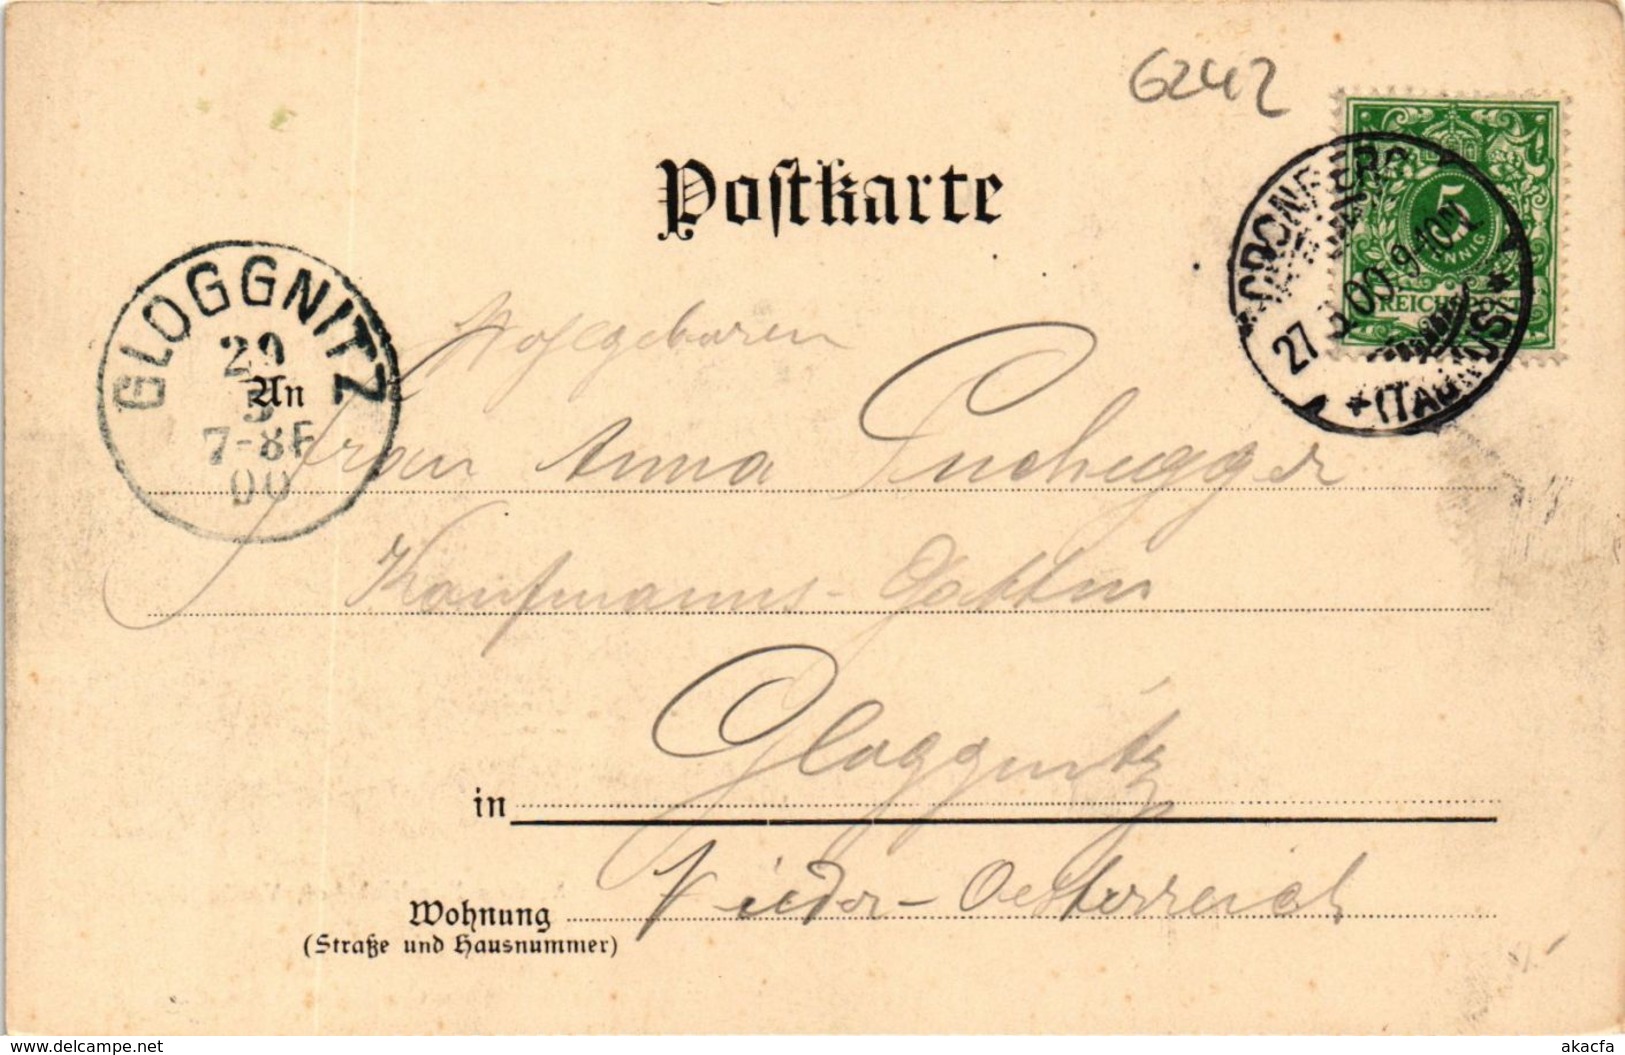 6242
Postkarte
CRONBERG
27 5 00. 9-10N.
*(TAUNUS)*
5
PFENNIG
REICHSPOST
GLOGGNITZ
29
5
7-8F
00
An
Wohlgeboren
Frau Anna Puchegger
Kaufmanns-Gattin
in Gloggnitz
Nieder-Oesterreich
Wohnung
(Straße und Hausnummer)
akpool.co.uk
akacfa